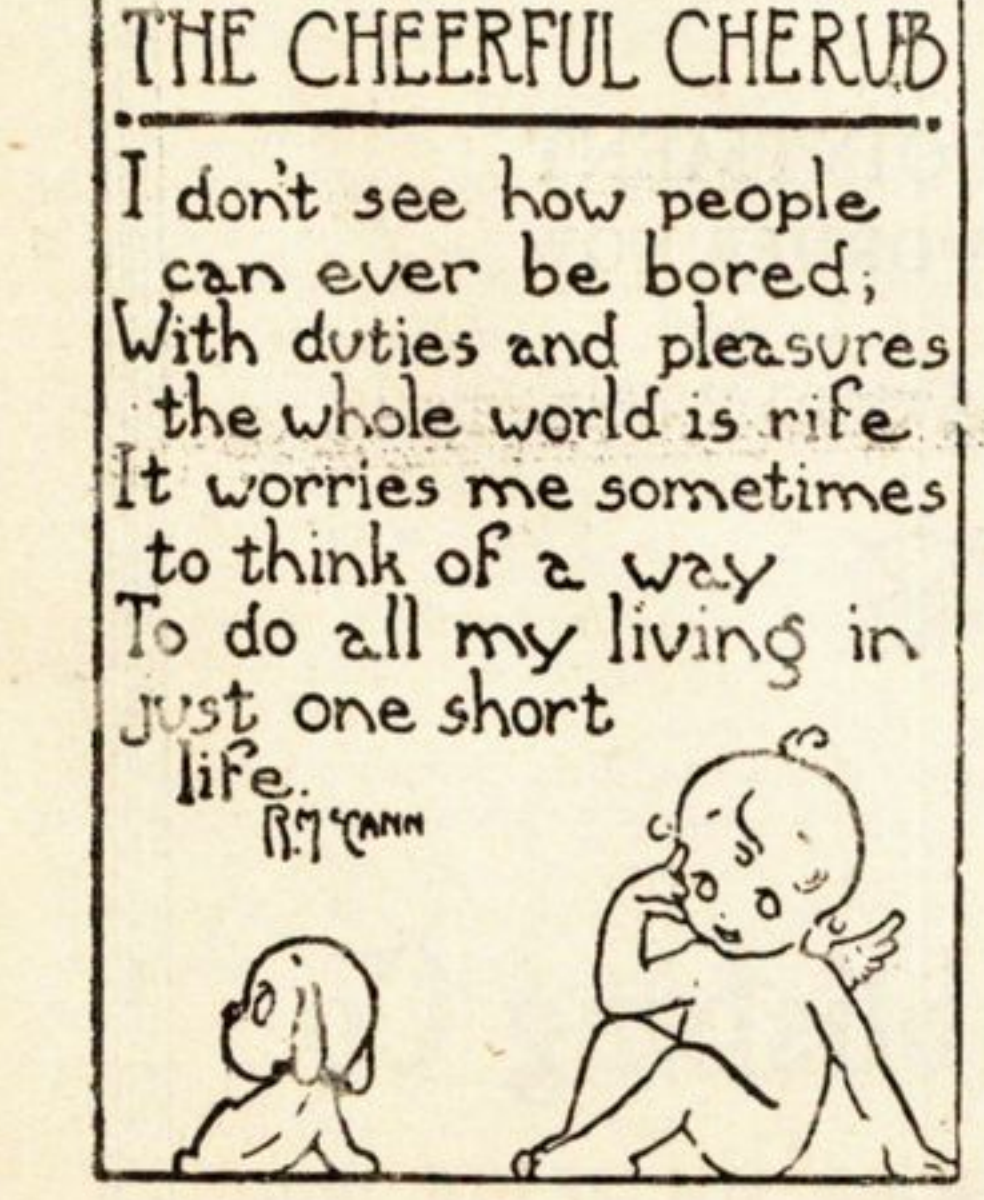 THE CHEERFUL CHERUB
I don't see how people
can ever be bored;
With duties and pleasures
the whole world is rife
It worries me sometimes
to think of a way
To do all my living in
just one short
life.
R.McCANN